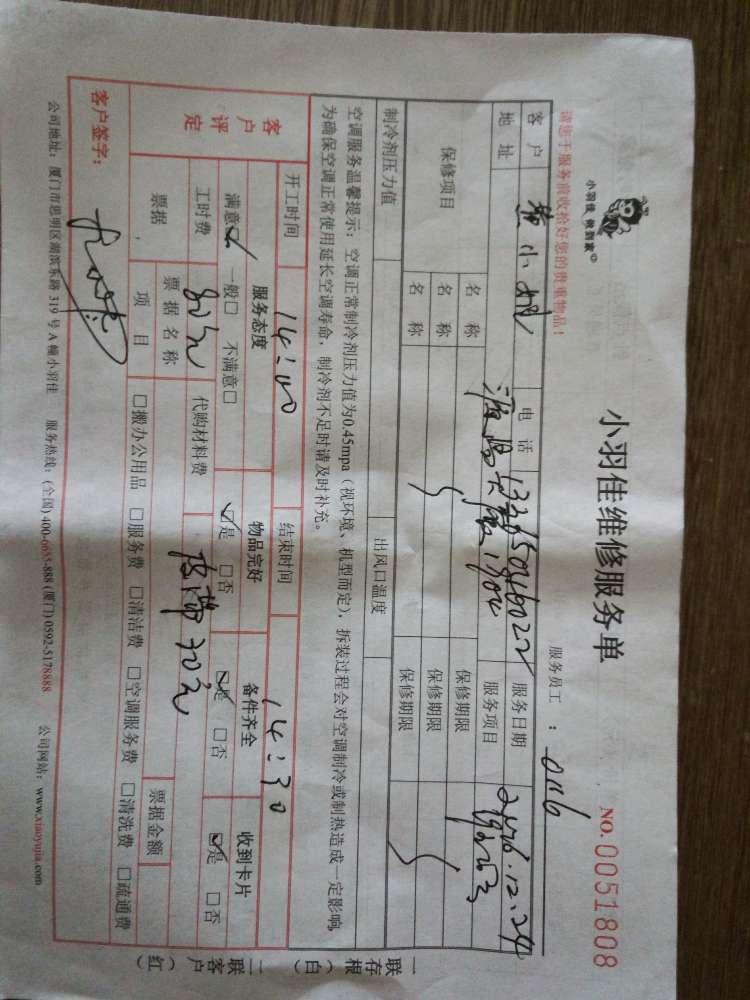 小羽佳 做到家
小羽佳维修服务单
NO. 0051808
请您于服务前收拾好您的贵重物品！
服务员工：0116
客户 小 电话 服务日期 2016.12.24
地址 1904 服务项目
保修项目 名称 保修期限
名称 保修期限
名称 保修期限
制冷剂压力值 出风口温度
空调服务温馨提示：空调正常制冷剂压力值为0.45mpa（视环境、机型而定），拆装过程会对空调制冷或制热造成一定影响，
为确保空调正常使用延长空调寿命，制冷剂不足时请及时补充。
开工时间 14:00 结束时间 14:30
客户评定 服务态度 物品完好 备件齐全 收到卡片
满意☑ 一般□ 不满意□ ☑是 □否 ☑是 □否 ☑是 □否
工时费 80元 代购材料费 皮带30元
票据 票据名称 票据金额
项目 □搬办公用品 □服务费 □清洁费 □空调服务费 □清洗费 □疏通费
客户签字：
公司地址：厦门市思明区湖滨东路 319 号 A 幢小羽佳 服务热线：(全国) 400-6655-888 (厦门) 0592-5178888 公司网站：www.xiaoyujia.com
一联存根（白）
二联客户（红）